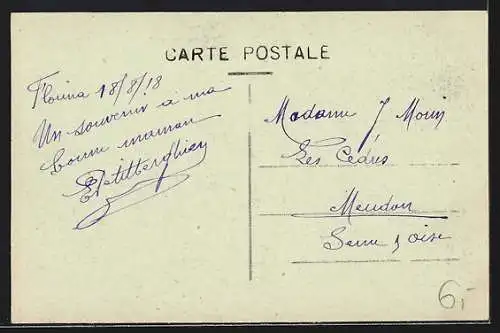 CARTE POSTALE
Florina 18/8/18
Un souvenir à ma
bonne maman
Madame J Morin
Les Cèdres
Meudon
Seine & Oise
6,-